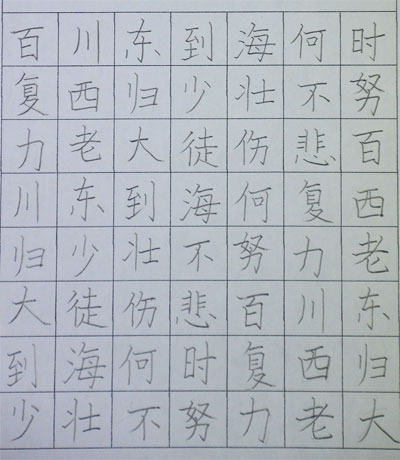 百川东到海何时
复西归少壮不努
力老大徒伤悲百
川东到海何复西
归少壮不努力老
大徒伤悲百川东
到海何时复西归
少壮不努力老大